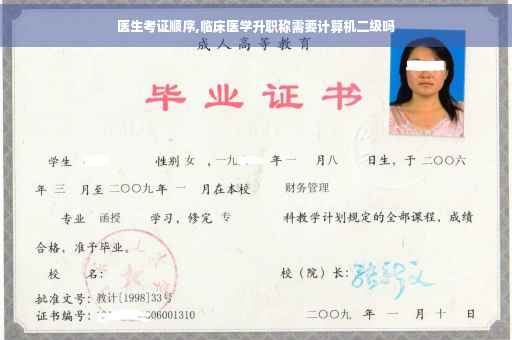 医生考证顺序,临床医学升职称需要计算机二级吗
成人高等教育
毕业证书
学生 性别 女 ,一九 年 一 月八 日生，于 二〇〇六
年 三 月至 二〇〇九 年 一 月在本校 财务管理
专业 函授 学习，修完 专 科教学计划规定的全部课程，成绩
合格，准予毕业。
校 名： 校（院）长：
批准文号：教计[1998]33号
证书编号： 06001310 二〇〇九 年 一 月 十 日